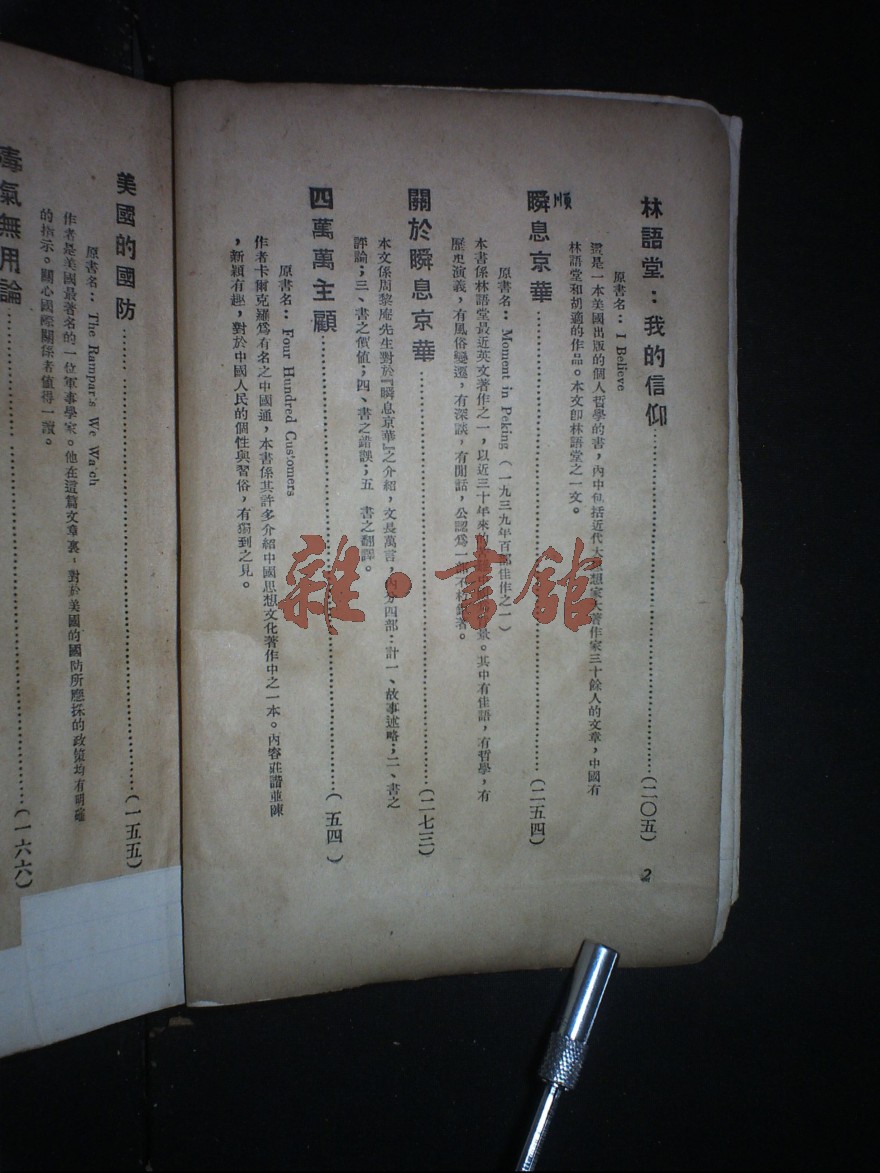 林語堂：我的信仰……（二〇五）
原書名：I Believe
這是一本美國出版的個人哲學的書，內中包括近代大思想家大著作家三十餘人的文章，中國有
林語堂和胡適的作品。本文卽林語堂之一文。
順
瞬息京華……（二五四）
原書名：Moment in Peking（一九三九年百部佳作之一）
本書係林語堂最近英文著作之一，以近三十年來的 景。其中有佳語，有哲學，有
歷史演義，有風俗變遷，有深談，有閒話，公認爲一部不朽 著。
關於瞬息京華……（二七三）
本文係周黎庵先生對於『瞬息京華』之介紹，文長萬言，內分四部：計一、故事述略；二、書之
評論；三、書之價值；四、書之錯誤；五 書之翻譯。
四萬萬主顧……（ 五四 ）
原書名：Four Hundred Cus'omers
作者卡爾克羅爲有名之中國通，本書係其許多介紹中國思想文化著作中之一本。內容莊諧並陳
，新穎有趣，對於中國人民的個性與習俗，有獨到之見。
2
美國的國防……（一五五）
原書名：The Rampar's We Wa'ch
作者是美國最著名的一位軍事學家。他在這篇文章裏，對於美國的國防所應採的政策均有明確
的指示。關心國際關係者值得一讀。
毒氣無用論……（一六六）
雜·書館